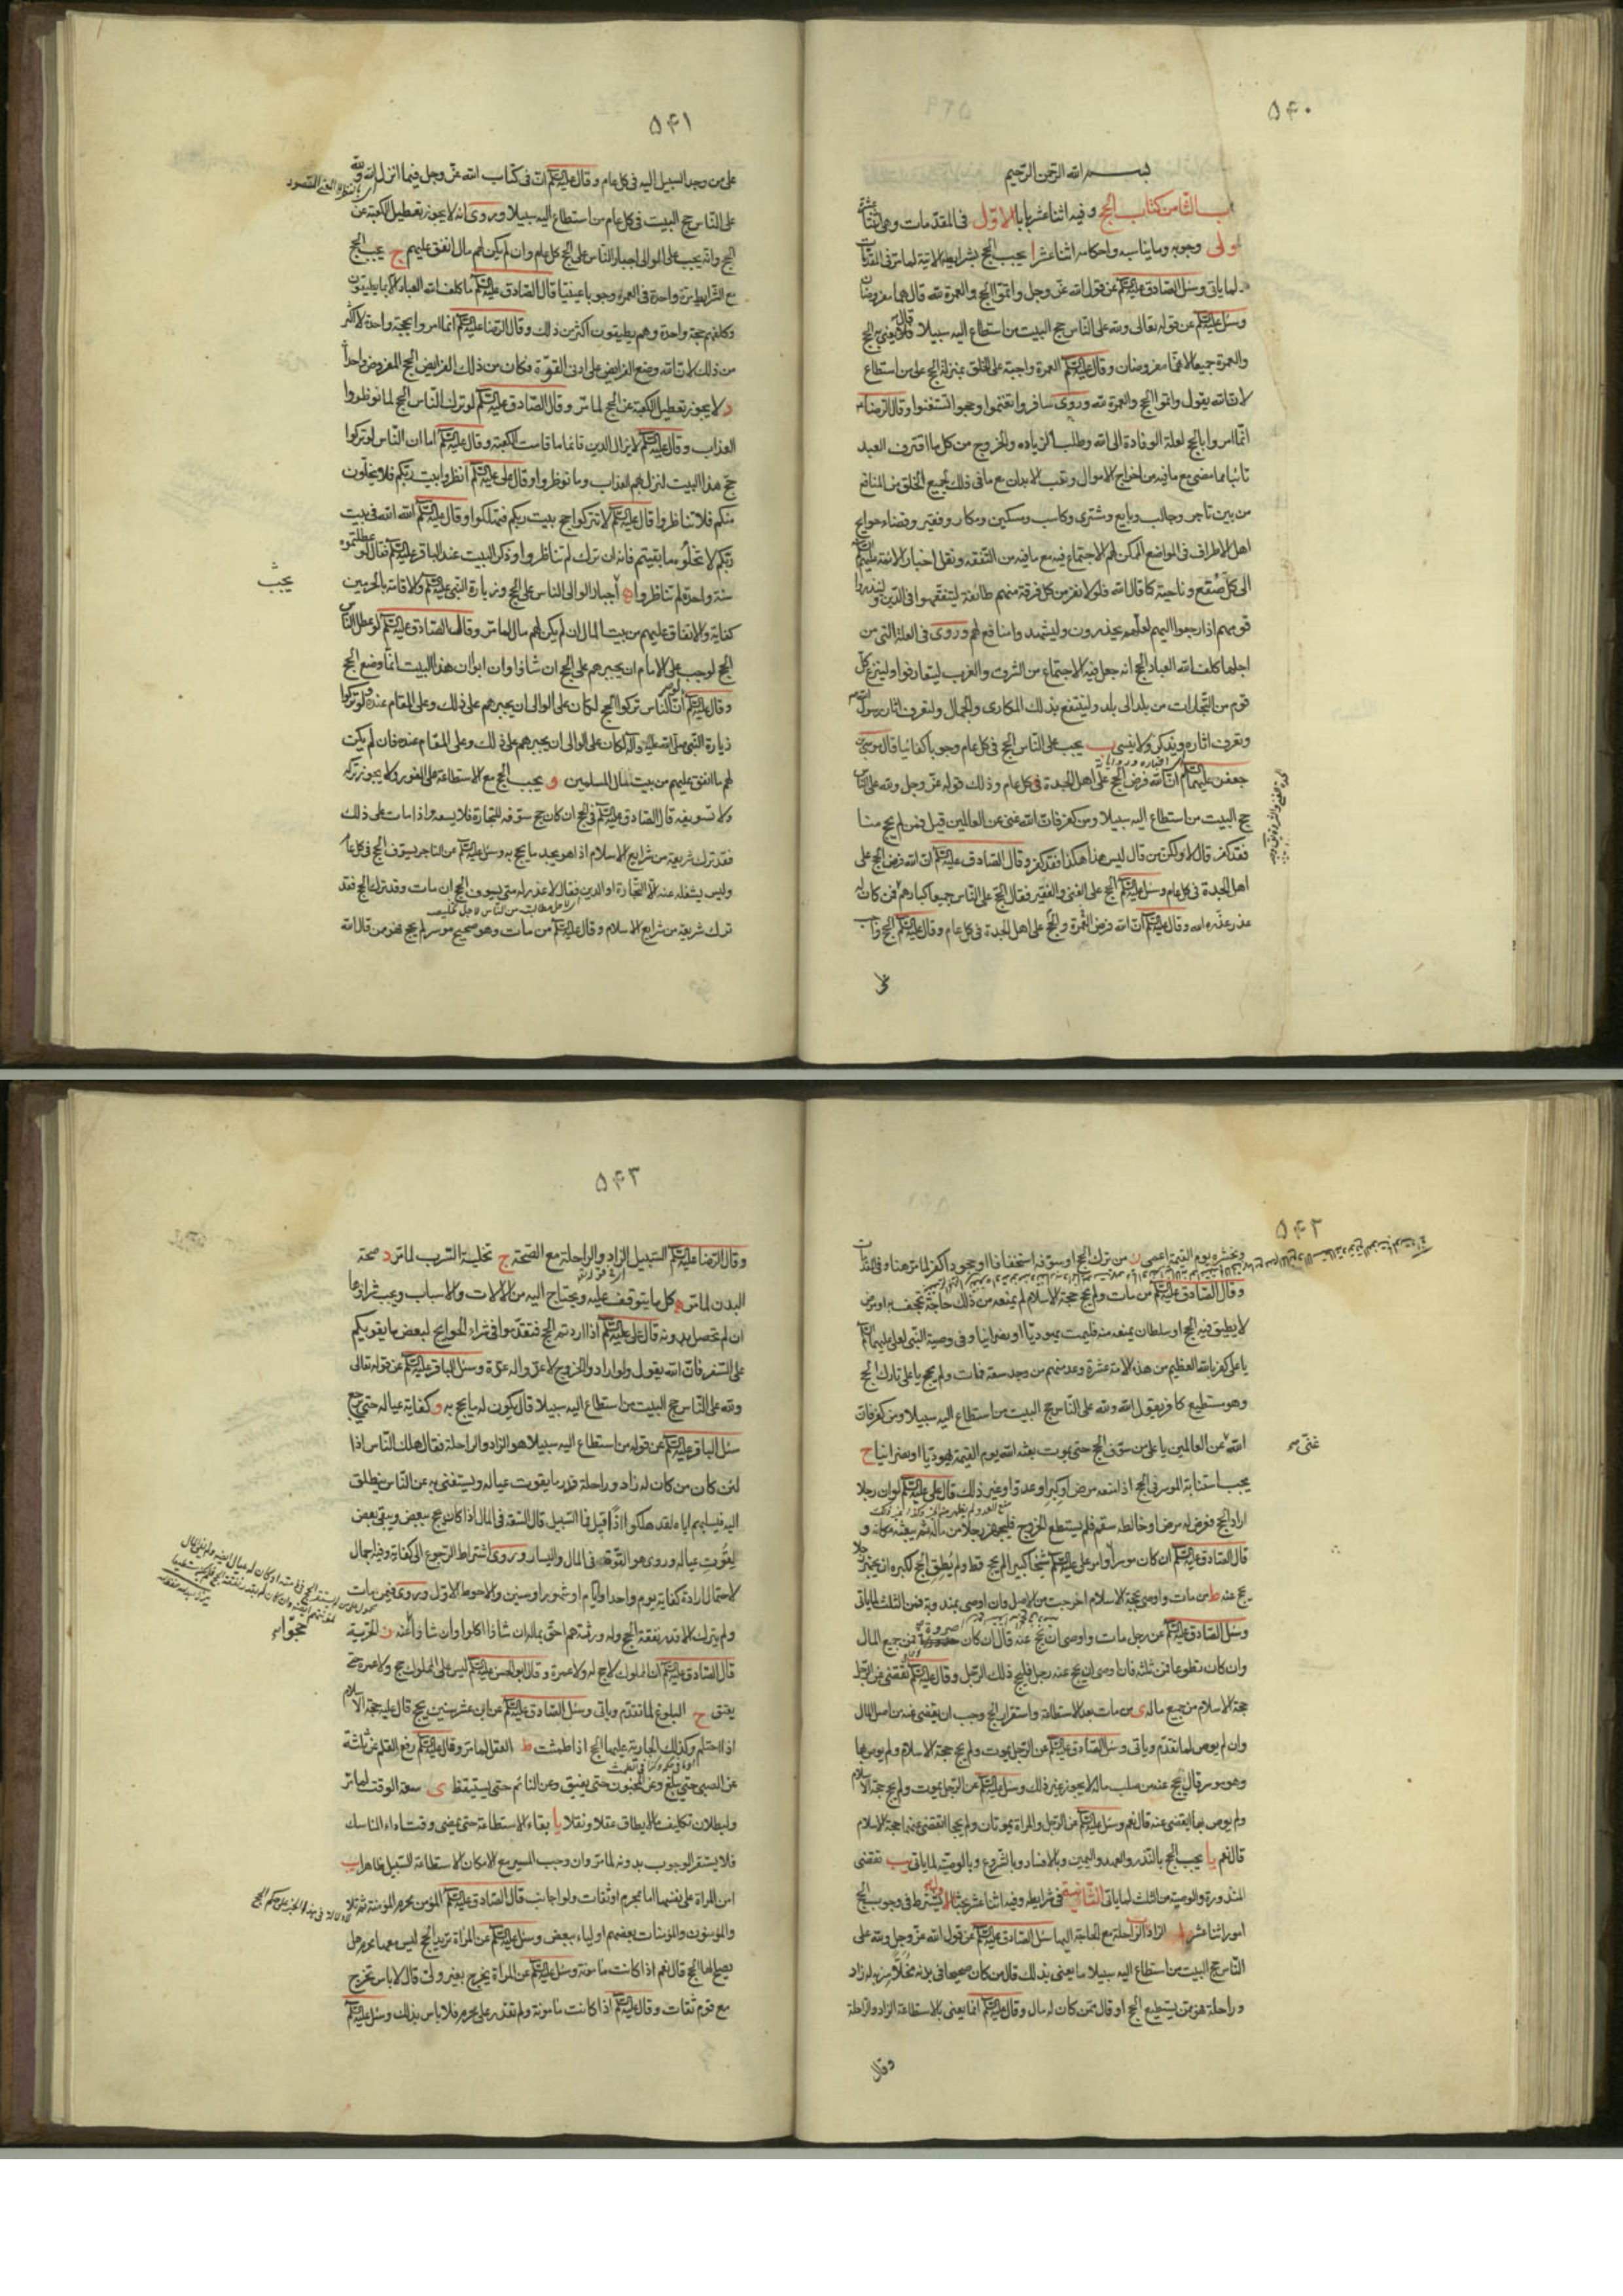 ۵۴۰
بسم الله الرحمن الرحيم
الثامن كتاب الحج وفيه اثنا عشر بابا الاول في المقدمات وهي اثنتا عشرة
وجوبه وما يناسبه واحكامه اثنا عشر ا يجب الحج بشرايطه الاتية لما مر في المقدمات
لما ياتي وسئل الصادق عليه السلام عن قول الله عز وجل واتموا الحج والعمرة لله قال هما مفروضان
وسئل عليه السلام عن قوله تعالى ولله على الناس حج البيت من استطاع اليه سبيلا قال يعني به الحج
والعمرة جميعا لانهما مفروضان وقال عليه السلام العمرة واجبة على الخلق بمنزلة الحج على من استطاع
لان الله يقول واتموا الحج والعمرة لله وروى سافروا تغنموا وحجوا تستغنوا وقال الرضا
انما امروا بالحج لعلة الوفادة الى الله وطلب الزياده والخروج من كل ما اقترف العبد
تائبا مما مضى مع ما فيه من اخراج الاموال وتعب الابدان مع ما في ذلك لجميع الخلق من المنافع
من بين تاجر وجالب وبايع ومشتري وكاسب ومسكين ومكار وفقير وقضاء حوايج
اهل الاطراف في المواضع الممكن لهم الاجتماع فيه مع ما فيه من التفقه ونقل اخبار الائمة عليهم السلام
الى كل صقع وناحية كما قال الله فلولا نفر من كل فرقة منهم طائفة ليتفقهوا في الدين ولينذروا
قومهم اذا رجعوا اليهم لعلهم يحذرون وليشهدوا منافع لهم وروى في العلة التي من
اجلها كلف الله العباد الحج انه جعل فيه الاجتماع من الشرق والغرب ليتعارفوا ولينزع كل
قوم من التجارات من بلد الى بلد ولينتفع بذلك المكاري والجمال ولتعرف اثار رسول الله
وتعرف اخباره ويذكر ولا ينسى ب يجب على الناس الحج في كل عام وجوبا كفائيا قال موسى بن
جعفر عليهما السلام ان الله فرض الحج على اهل الجدة في كل عام وذلك قوله عز وجل ولله على الناس
حج البيت من استطاع اليه سبيلا ومن كفر فان الله غني عن العالمين قيل فمن لم يحج منا
فقد كفر قال لا ولكن من قال ليس هذا هكذا فقد كفر وقال الصادق عليه السلام ان الله فرض الحج على
اهل الجدة في كل عام وسئل عليه السلام الحج على الغني والفقير فقال الحج على الناس جميعا كبارهم فمن كان له
عذر عذره الله وقال عليه السلام ان الله فرض العمرة والحج على اهل الجدة في كل عام وقال عليه السلام الحج واجب
۵۴۱
على من وجد السبيل اليه في كل عام وقال عليه السلام ان في كتاب الله عز وجل فيما انزل الله ولله
على الناس حج البيت في كل عام من استطاع اليه سبيلا وروى انه لا يجوز تعطيل الكعبة عن
الحج وانه يجب على الوالي اجبار الناس على الحج كل عام وان لم يكن لهم مال انفق عليهم ج يجب الحج
مع الشرايط مرة واحدة في العمر وجوبا عينيا قال الصادق عليه السلام ما كلف الله العباد الا ما يطيقون
وكلفهم حجة واحدة وهم يطيقون اكثر من ذلك وقال الرضا عليه السلام انما امروا بحجة واحدة لا اكثر
من ذلك لان الله وضع الفرايض على ادنى القوة فكان من ذلك الفرايض الحج المفروض واحدا
د لا يجوز تعطيل الكعبة عن الحج لما مر وقال الصادق عليه السلام لو ترك الناس الحج لما نوظروا
العذاب وقال عليه السلام لا يزال الدين قائما ما قامت الكعبة وقال عليه السلام اما ان الناس لو تركوا
حج هذا البيت لنزل بهم العذاب وما نوظروا وقال علي عليه السلام انظروا بيت ربكم فلا يخلون
منكم فلا تناظروا وقال عليه السلام لا تتركوا حج بيت ربكم فتهلكوا وقال عليه السلام الله الله في بيت
ربكم لا تخلوه ما بقيتم فانه ان ترك لم تناظروا وذكر البيت عند الباقر عليه السلام فقال لو عطلتموه
سنة واحدة لم تناظروا ه اجبار الوالي الناس على الحج وزيارة النبي عليه السلام والاقامة بالحرمين
يجب
كفاية والانفاق عليهم من بيت المال ان لم يكن لهم مال لما مر وقال الصادق عليه السلام لو عطل الناس
الحج لوجب على الامام ان يجبرهم على الحج ان شاؤا وان ابوا لان هذا البيت انما وضع للحج
وقال عليه السلام لو ان الناس تركوا الحج لكان على الوالي ان يجبرهم على ذلك وعلى المقام عنده ولو تركوا
زيارة النبي صلى الله عليه وآله لكان على الوالي ان يجبرهم على ذلك وعلى المقام عنده فان لم يكن
لهم مال انفق عليهم من بيت مال المسلمين و يجب الحج مع الاستطاعة على الفور ولا يجوز تركه
ولا تسويفه قال الصادق عليه السلام في الحج ان كان حج سوفه للتجارة فلا يسعه واذا مات على ذلك
فقد ترك شريعة من شرايع الاسلام اذا هو يجد ما يحج به وسئل عليه السلام عن التاجر يسوف الحج في كل عام
وليس يشغله عنه الا التجارة او الدين فقال لا عذر له متى يسوف الحج ان مات وقد ترك الحج فقد
ترك شريعة من شرايع الاسلام وقال عليه السلام من مات وهو صحيح موسر لم يحج فهو ممن قال الله
۵۴۲
ونحشره يوم القيمة اعمى ز من ترك الحج او سوفه استخفافا او جحودا كفر لما مر هنا وفي المقدمات
وقال الصادق عليه السلام من مات ولم يحج حجة الاسلام لم يمنعه من ذلك حاجة تجحف به او مرض
لا يطيق فيه الحج او سلطان يمنعه منه فليمت يهوديا او نصرانيا وفي وصية النبي لعلي عليهما السلام
يا علي كفر بالله العظيم من هذه الامة عشرة وعد منهم من وجد سعة فمات ولم يحج يا علي تارك الحج
وهو مستطيع كافر يقول الله ولله على الناس حج البيت من استطاع اليه سبيلا ومن كفر فان
الله عن العالمين يا علي من سوف الحج حتى يموت بعثه الله يوم القيمة يهوديا او نصرانيا ح
غنى
يجب استنابة الموسر في الحج اذا منعه مرض او كبر او عدو او غير ذلك قال علي عليه السلام لو ان رجلا
اراد الحج فعرض له مرض او خالطه سقم فلم يستطع الخروج فليجهز رجلا من ماله ثم يبعثه مكانه و
قال الصادق عليه السلام ان كان موسرا وامر علي عليه السلام شيخا كبيرا لم يحج قط ولم يطق الحج لكبره ان يجهز رجلا
يحج عنه ط من مات واوصى بحجة الاسلام اخرجت من الاصل وان اوصى بمندوبة فمن الثلث لما ياتي
وسئل الصادق عليه السلام عن رجل مات واوصى ان يحج عنه قال ان كان صرورة فمن جميع المال
وان كان تطوعا فمن ثلثه فان اوصى ان يحج عنه رجل فليحج ذلك الرجل وقال عليه السلام تقضى عن الرجل
حجة الاسلام من جميع ماله ى من مات بعد الاستطاعة واستقرار الحج وجب ان يقضى عنه من اصل المال
وان لم يوص لما تقدم وياتي وسئل الصادق عليه السلام عن الرجل يموت ولم يحج حجة الاسلام ولم يوص بها
وهو موسر قال يحج عنه من صلب ماله لا يجوز غير ذلك وسئل عليه السلام عن الرجل يموت ولم يحج حجة الاسلام
ولم يوص بها ايقضى عنه قال نعم وسئل عليه السلام عن الرجل والمراة يموتان ولم يحجا اتقضى عنهما حجة الاسلام
قال نعم يا يجب الحج بالنذر والعهد واليمين وبالافساد وبالشروع وبالوصية لما ياتي يب تقضى
المنذورة والوصية من الثلث لما ياتي الثانية في شرايطه وفيه اثنا عشر بحثا الاول يشترط في وجوب الحج
امور اثنا عشر ا الزاد والراحلة مع الحاجة اليها سئل الصادق عليه السلام عن قول الله عز وجل ولله على
الناس حج البيت من استطاع اليه سبيلا ما يعني بذلك قال من كان صحيحا في بدنه مخلا سربه له زاد
وراحلة فهو ممن يستطيع الحج او قال ممن كان له مال وقال عليه السلام انما يعني بالاستطاعة الزاد والراحلة
وقال
۵۴۳
وقال الرضا عليه السلام السبيل الزاد والراحلة مع الصحة ج تخلية السرب لما مر د صحة
البدن لما مر ه كل ما يتوقف عليه ويحتاج اليه من الالات والاسباب ويجب شراؤها
ان لم تحصل بدونه قال علي عليه السلام اذا اردتم الحج فتقدموا في شراء الحوايج لبعض ما يقويكم
على السفر فان الله يقول ولو ارادوا الخروج لاعدوا له عدة وسئل الباقر عليه السلام عن قوله تعالى
ولله على الناس حج البيت من استطاع اليه سبيلا قال يكون له ما يحج به و كفاية عياله حتى يرجع
سئل الباقر عليه السلام عن قوله من استطاع اليه سبيلا هو الزاد والراحلة فقال هلك الناس اذا
لئن كان من كان له زاد وراحلة قدر ما يقوت عياله ويستغني به عن الناس ينطلق
اليه فيسلبهم اياه لقد هلكوا اذا قيل فما السبيل قال السعة في المال اذا كان يحج ببعض ويبقى بعض
ليقوت عياله وروى هو القوة في المال واليسار وروى اشتراط الرجوع الى كفاية وفيه اجمال
لاحتمال ارادة كفاية يوم واحد وايام او شهور او سنين والاحوط الاول وروى فيمن مات
ولم يترك الا قدر نفقة الحج وله ورثة هم احق بماله ان شاؤا اكلوا وان شاؤا عنه ز الحرية
حجوا
قال الصادق عليه السلام ان المملوك لا حج له ولا عمرة وقال ابو الحسن عليه السلام ليس على المملوك حج ولا عمرة حتى
يعتق ح البلوغ لما تقدم وياتي وسئل الصادق عليه السلام عن ابن عشر سنين يحج قال عليه حجة الاسلام
اذا احتلم وكذلك الجارية عليها الحج اذا طمثت ط العقل لما مر وقال عليه السلام رفع القلم عن ثلثة
عن الصبي حتى يبلغ وعن المجنون حتى يفيق وعن النائم حتى يستيقظ ى سعة الوقت لما مر
ولبطلان تكليف ما لا يطاق عقلا ونقلا يا بقاء الاستطاعة حتى يمضي وقت اداء المناسك
فلا يستقر الوجوب بدونه لما مر وان وجب المسير مع الامكان لاستطاعة السبيل ظاهرا يب
امن المراة على نفسها اما بمحرم او ثقات ولو اجانب قال الصادق عليه السلام المؤمن محرم المؤمنة ثم تلا
والمؤمنون والمؤمنات بعضهم اولياء بعض وسئل عليه السلام عن المراة تريد الحج ليس معها محرم هل
يصلح لها الحج قال نعم اذا كانت مامونة وسئل عليه السلام عن المراة تخرج بغير ولي قال لا باس تخرج
مع قوم ثقات وقال عليه السلام اذا كانت مامونة ولم تقدر على محرم فلا باس بذلك وسئل عليه السلام